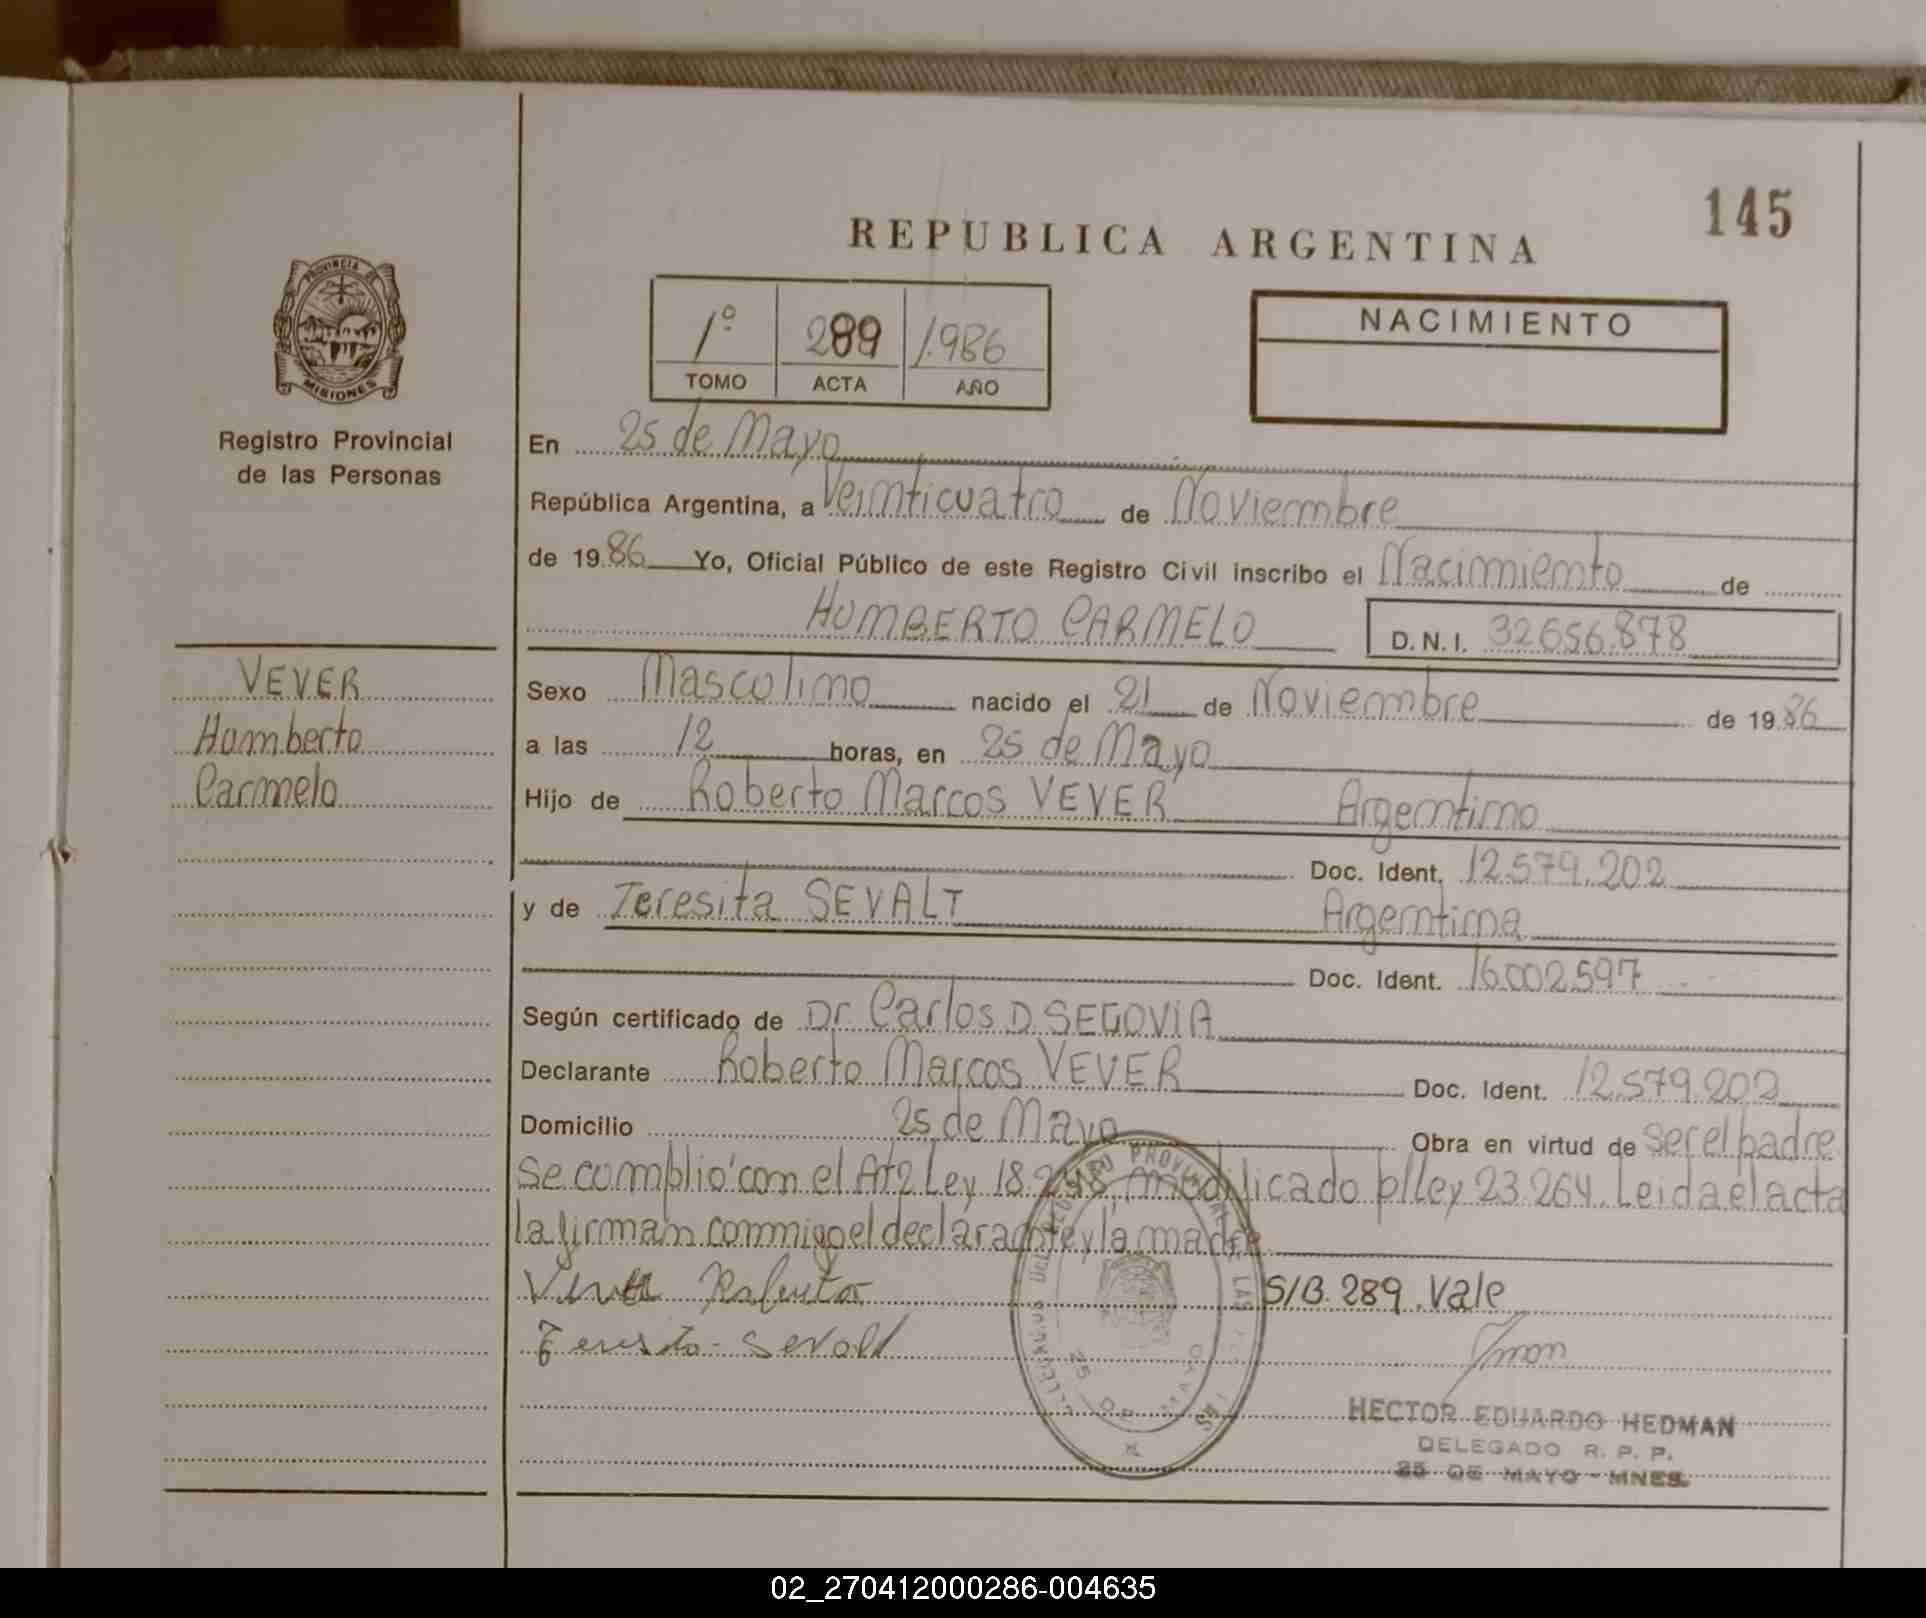 145
REPUBLICA ARGENTINA
PROVINCIA DE
MISIONES
Registro Provincial
de las Personas
1º 289 1.986
TOMO ACTA AÑO
NACIMIENTO
En 25 de Mayo
República Argentina, a Veinticuatro de Noviembre
de 1986 Yo, Oficial Público de este Registro Civil inscribo el Nacimiento de
HUMBERTO CARMELO D.N.I. 32656.878
VEVER
Humberto
Carmelo
Sexo Masculino nacido el 21 de Noviembre de 1986
a las 12 horas, en 25 de Mayo
Hijo de Roberto Marcos VEVER Argentino
Doc. Ident. 12.579.202
y de Teresita SEVALT Argentina
Doc. Ident. 16.002.597
Según certificado de Dr Carlos D. SEGOVIA
Declarante Roberto Marcos VEVER Doc. Ident. 12.579.202
Domicilio 25 de Mayo Obra en virtud de ser el padre
Se cumplio con el At2 Ley 18.248 Modificado p/ley 23.264. Leida el acta
la firman conmigo el declarante y la madre
S/B. 289. Vale
Teresita Sevalt
HECTOR EDUARDO HEDMAN
DELEGADO R. P. P.
25 DE MAYO - MNES.
02_270412000286-004635